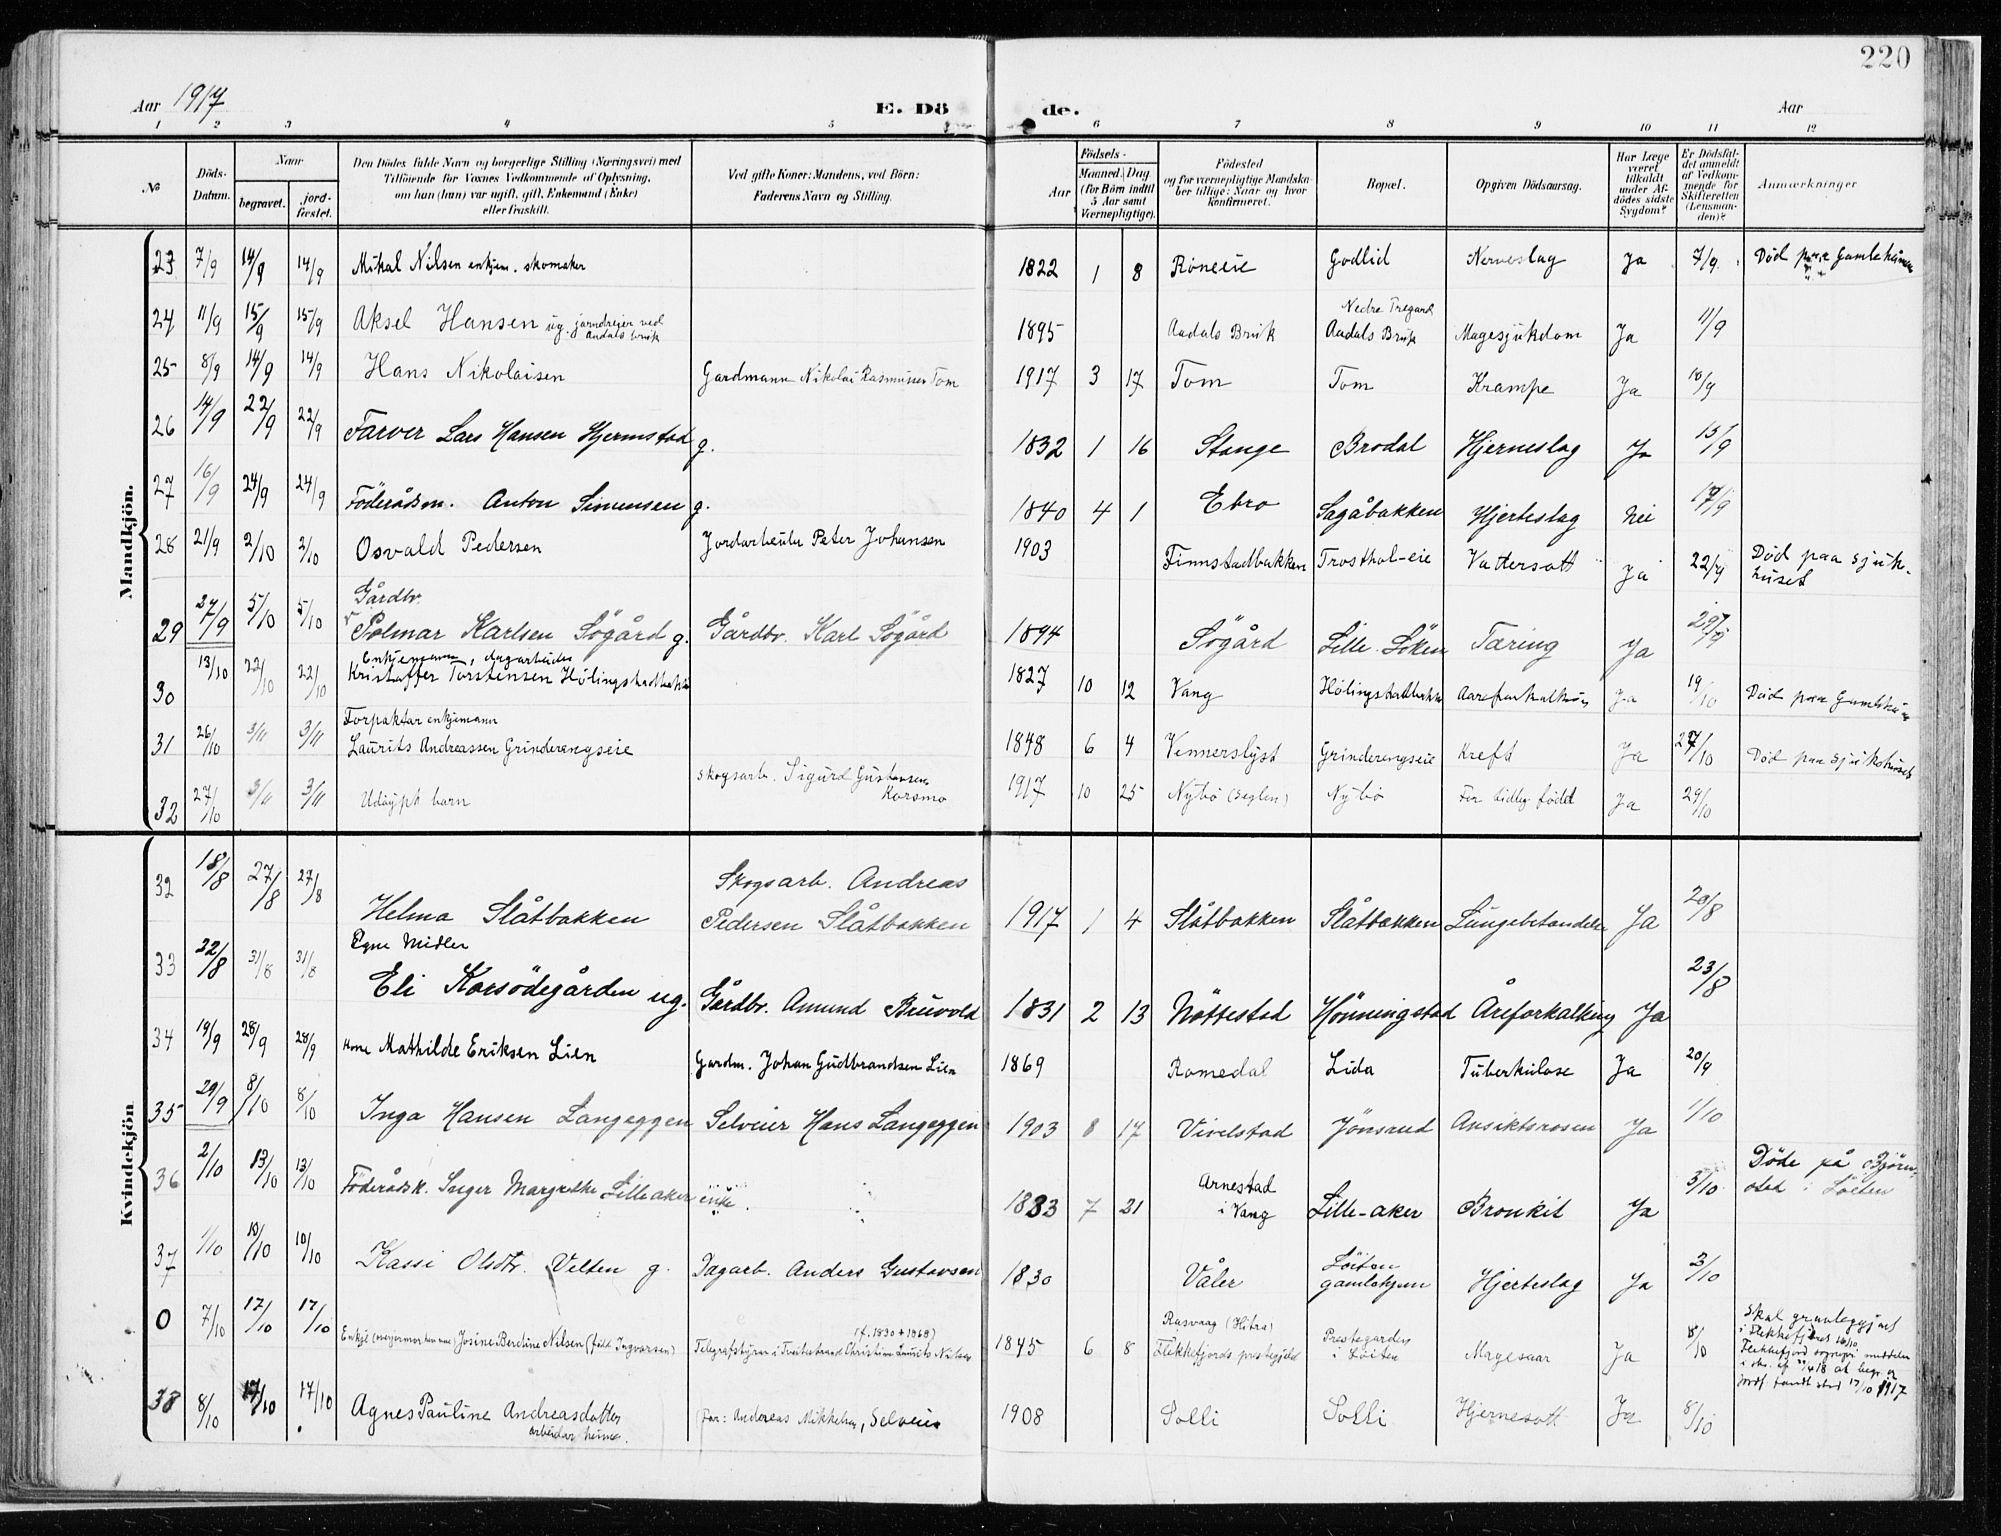 220
Aar 1917 E. Dö de. Aar
1 2 3 4 5 6 7 8 9 10 11 12
No
Döds-Datum.
Naar
begravet.
jord-fæstet.
Den Dödes fulde Navn og borgerlige Stilling (Næringsvei) med
Tilföiende for Voxnes Vedkommende af Oplysning,
om han (hun) var ugift, gift, Enkemand (Enke)
eller fraskilt.
Ved gifte Koner: Mandens, ved Börn:
Faderens Navn og Stilling.
Födsels-
Aar
Maaned. Dag
(for Börn indtil
5 Aar samt
Værnepligtige).
Födested
og for værnepligtige Mandska-
ber tillige: Naar og hvor
konfirmeret.
Bopæl.
Opgiven Dödsaarsag.
Har Læge
været
tilkaldt
under Af-
dödes sidste
Sygdom?
Er Dödsfal-
det anmeldt
af Vedkom-
mende for
Skifteretten
(Lensman-
den)?
Anmærkninger
Mandkjön.
23 7/9 14/9 14/9 Mikal Nilsen enkjem. skomaker 1822 1 8 Roneeie Godlid Nerveslag Ja 7/9 Død paa Gamleheimen
24 11/9 15/9 15/9 Aksel Hansen ug. jarndreier ved Aadals bruk 1895 Aadals Bruk Nedre Tregard Aadals Bruk Magesjukdom Ja 11/9
25 8/9 14/9 14/9 Hans Nikolaisen Gardmann Nikolai Rasmusen Tom 1917 3 17 Tom Tom Krampe Ja 10/9
26 14/9 22/9 22/9 Farver Lars Hansen Hjermstad g. 1832 1 16 Stange Brodal Hjerneslag Ja 15/9
27 16/9 24/9 24/9 Föderådsm. Anton Simensen g. 1840 4 1 Ebro Sagåbakken Hjerteslag Nei 17/9
28 21/9 2/10 2/10 Osvald Pedersen Jordarbeider Peter Johansen 1903 Finnstadbakken Trosthol-eie Vattersott Ja 22/9 Død paa sjukhuset
29 27/9 5/10 5/10 Gårdbr. Polmar Karlsen Sögård g. Gårdbr. Karl Sögård 1894 Sögård Lille Löken Tæring Ja 29/9
30 13/10 22/10 22/10 Enkjemann, dagarbeider Kristoffer Torstensen Hölingstadbakke 1827 10 12 Vang Hölingstadbakke Aareforkalkning Ja 19/10 Død paa Gamleheimen
31 26/10 3/11 3/11 Forpaktar enkjemann Laurits Andreassen Grinderengseie 1848 6 4 Vennerslyst Grinderengseie Kreft Ja 27/10 Død paa sjukehuset
32 27/10 3/11 3/11 Udöypt barn skogsarb. Sigurd Gustavsen Korsmo 1917 10 25 Nybö (Seglen) Nybö For tidleg fødd Ja 29/10
Kvindekjön
32 18/8 27/8 27/8 Helma Slåtbakken Skogsarb. Andreas Pedersen Slåtbakken 1917 1 4 Slåtbakken Slåtbakken Lungebetændelse Ja 20/8
33 22/8 31/8 31/8 Egne Midler Eli Korsödegården ug. Gårdbr. Amund Bruvold 1831 2 13 Nöttestad Hönningstad Åreforkalkning Ja 23/8
34 19/9 28/9 28/9 Kone Mathilde Eriksen Lien Gardm. Johan Gudbrandsen Lien 1869 Romedal Lida Tuberkulose Ja 20/9
35 29/9 8/10 8/10 Inga Hansen Langeggen Selveier Hans Langeggen 1903 8 17 Vivelstad Jönsrud Ansiktsrosen Ja 1/10
36 2/10 13/10 13/10 Föderådsk. Inger Margrethe Lilleaker enke. 1833 7 21 Arnestad i Vang Lille-aker Bronkit Ja 3/10 Döde på Björnstad i Löiten
37 1/10 10/10 10/10 Kassi Olsdtr. Velten g. Dagarb. Anders Gustavsen 1830 Våler Löiten gamlehjem Hjerteslag Ja 2/10
0 7/10 17/10 17/10 Enkje Josine Berdine Nilsen (född Ingvarsen) (f. 1830 + 1868) Telegrafstyrar i Tvedestrand Christian Laurits Nilsen 1845 6 8 Rasvaag (Hitra) Flekkefjords prestegjeld Prestegarden i Löiten Magesaar Ja 8/10 Skal gravleggjast i Flekkefjord 16/10. Flekkefjord sogneprest meddeler i skr. af 22/4 18 at begr. og jordf. fandt sted 17/10 1917
38 8/10 17/10 17/10 Agnes Pauline Andreasdotter arbeidar heime. (Far: Andreas Mikkelsen, Selveier 1908 Solli Solli Hjernesott Ja 8/10